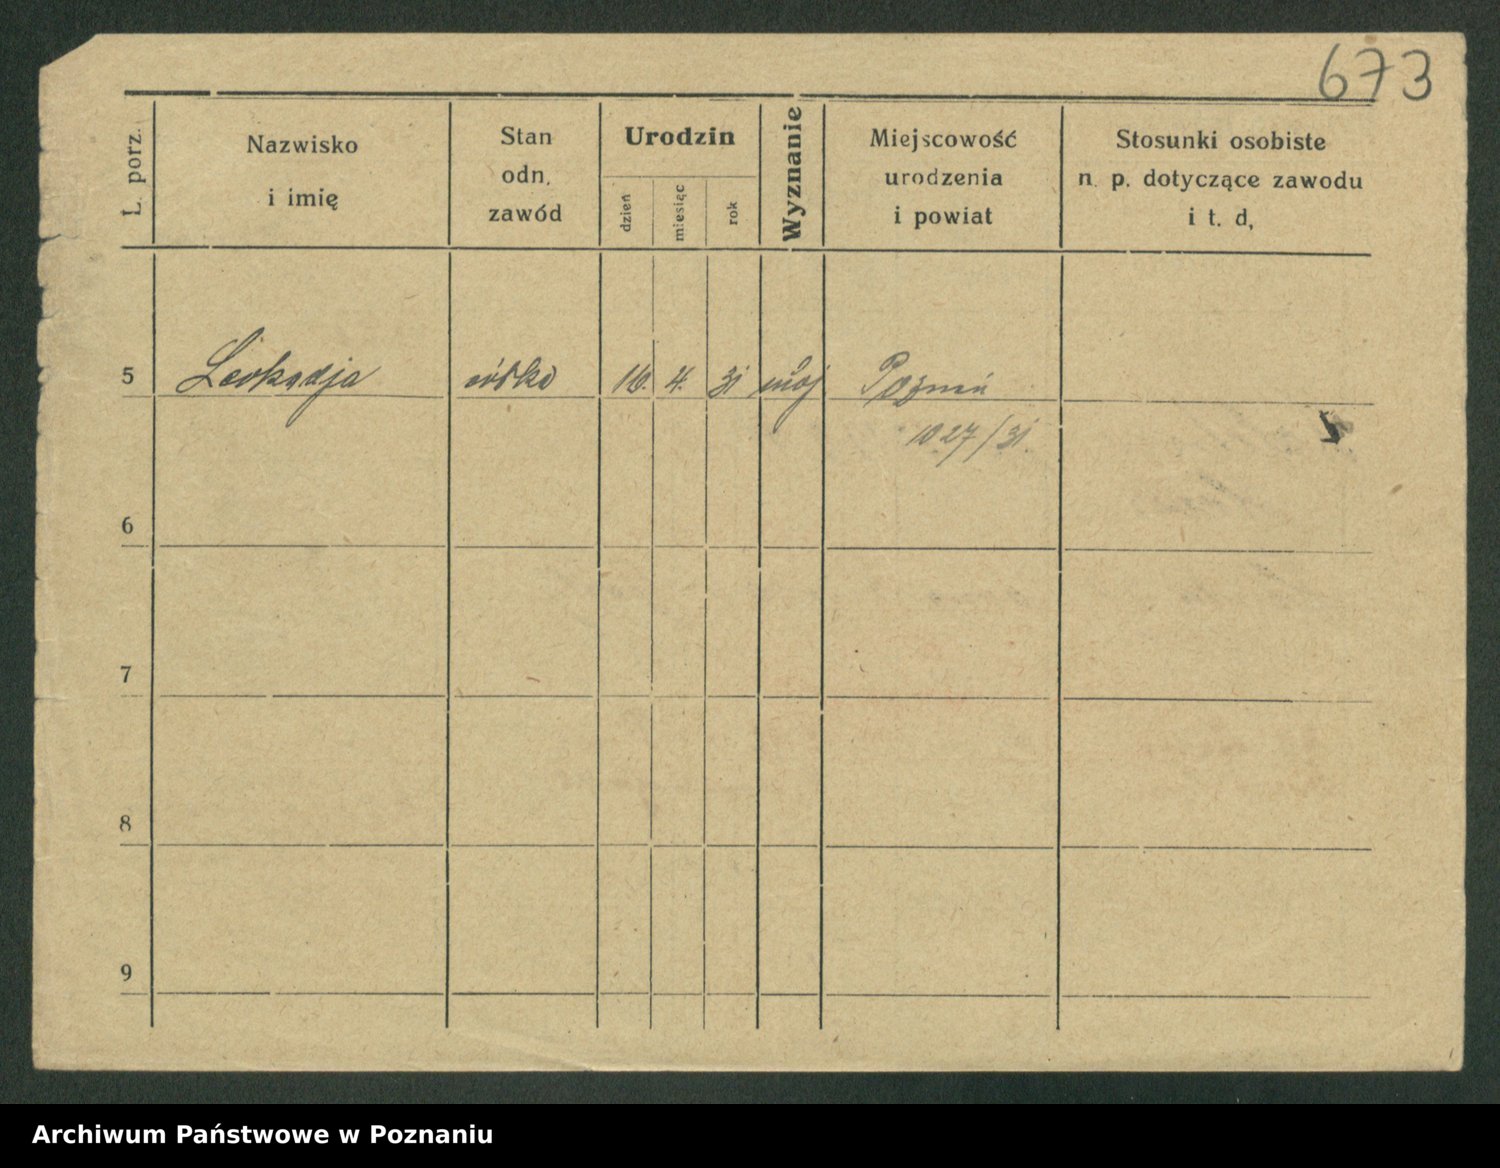 673
L. porz.
Nazwisko
i imię
Stan
odn.
zawód
Urodzin
dzień
miesiąc
rok
Wyznanie
Miejscowość
urodzenia
i powiat
Stosunki osobiste
n. p. dotyczące zawodu
i t. d,
5 Leokadja córka 16. 4. 31 Poznań
1027/31.
6
7
8
9
Archiwum Państwowe w Poznaniu